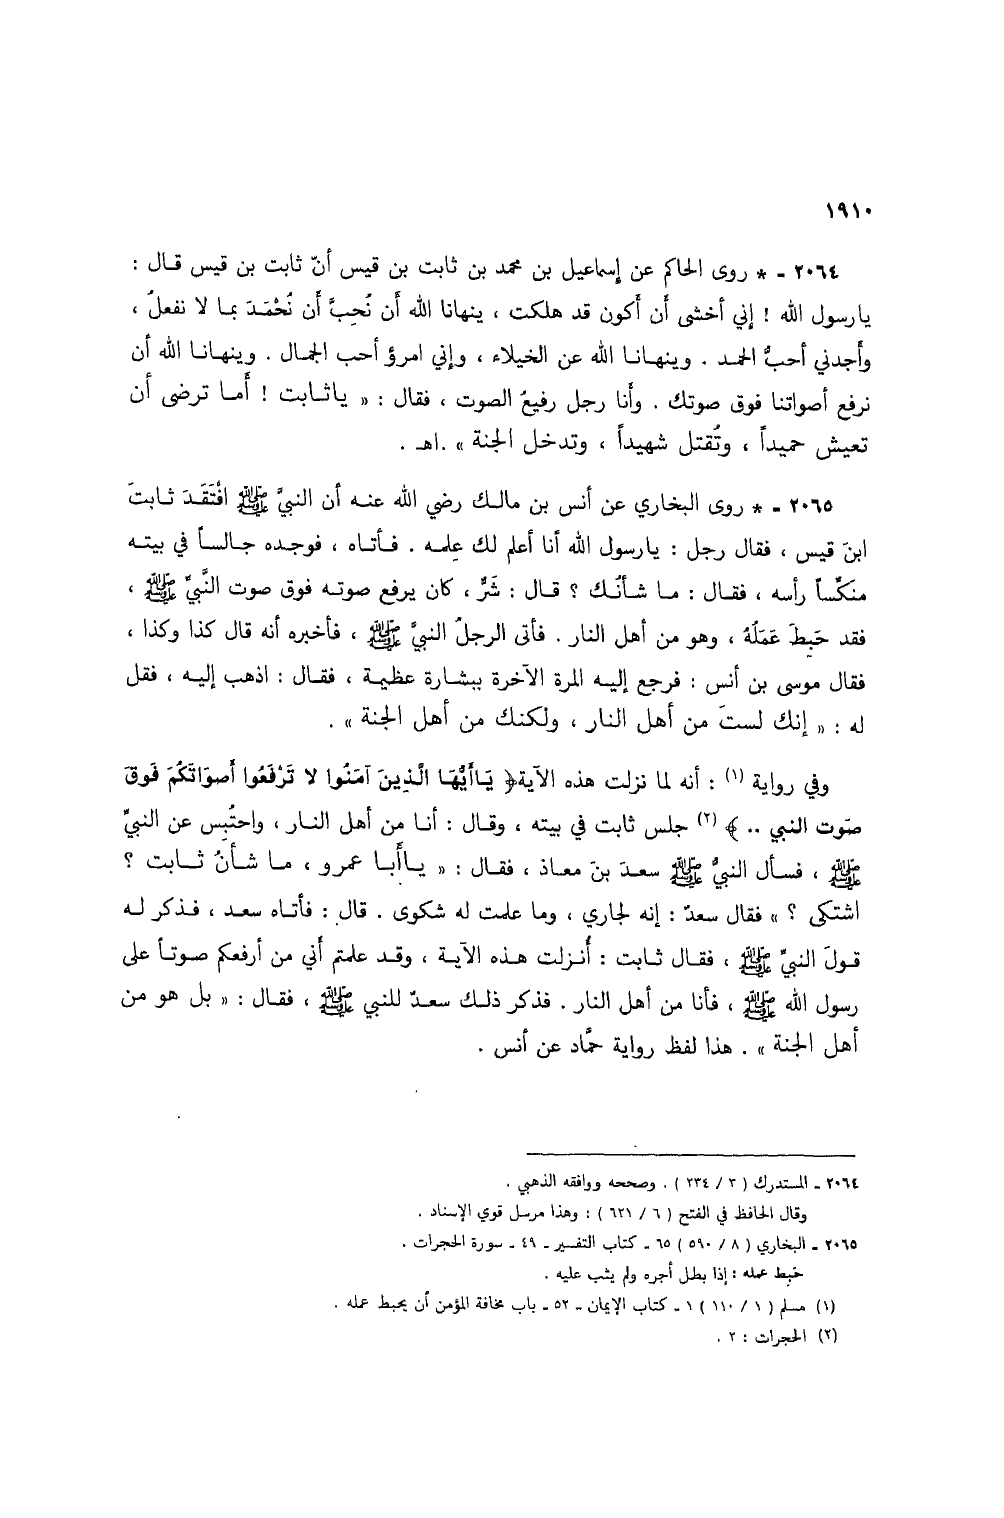 ١٩١٠
٢٠٦٤ - * روى الحاكم عن إسماعيل بن محمد بن ثابت بن قيس أنّ ثابت بن قيس قال :
يارسول الله ! إني أخشى أن أكون قد هلكت ، ينهانا الله أن نُحِبَّ أن نُحْمَدَ بما لا نفعلُ ،
وأجدني أحبُّ الحمد . وينهانا الله عن الخيلاء ، وإني امرؤ أحب الجمال . وينهانا الله أن
نرفع أصواتنا فوق صوتك . وأنا رجل رفيعُ الصوت ، فقال : « ياثابت ! أما ترضى أن
تعيش حميداً ، وتُقتل شهيداً ، وتدخل الجنة » .اهـ .
٢٠٦٥ - * روى البخاري عن أنس بن مالك رضي الله عنه أن النبيَّ ﷺ افْتَقَدَ ثابتَ
ابنَ قيس ، فقال رجل : يارسول الله أنا أعلم لك عِلمه . فأتاه ، فوجده جالساً في بيته
منكِّساً رأسه ، فقال : ما شأنُك ؟ قال : شَرٌّ ، كان يرفع صوته فوق صوت النَّبيِّ ﷺ ،
فقد حَبِطَ عَمَلَهُ ، وهو من أهل النار . فأتى الرجلُ النبيَّ ﷺ ، فأخبره أنه قال كذا وكذا ،
فقال موسى بن أنس : فرجع إليه المرة الآخرة ببشارة عظيمة ، فقال : اذهب إليه ، فقل
له : « إنك لستَ من أهل النار ، ولكنك من أهل الجنة » .
وفي رواية (١) : أنه لما نزلت هذه الآية ﴿ يَاأَيُّهَا الَّذِينَ آمَنُوا لا تَرْفَعُوا أَصوَاتَكُمْ فَوقَ
صَوت النبي .. ﴾ (٢) جلس ثابت في بيته ، وقال : أنا من أهل النار ، واحتُبِس عن النبيِّ
ﷺ ، فسأل النبيُّ ﷺ سعدَ بنَ معاذ ، فقال : « ياأَبا عمرو ، ما شأنُ ثابت ؟
اشتكى ؟ » فقال سعدٌ : إنه لجاري ، وما علمت له شكوى . قال : فأتاه سعد ، فذكر له
قولَ النبيِّ ﷺ ، فقال ثابت : أُنزلت هذه الآية ، وقد علمتم أَني من أرفعكم صوتاً على
رسول الله ﷺ ، فأنا من أهل النار . فذكر ذلك سعدٌ للنبي ﷺ ، فقال : « بل هو من
أهل الجنة » . هذا لفظ رواية حمَّاد عن أنس .
٢٠٦٤ - المستدرك ( ٣ / ٢٣٤ ) . وصححه ووافقه الذهبي .
وقال الحافظ في الفتح ( ٦ / ٦٢١ ) : وهذا مرسل قوي الإسناد .
٢٠٦٥ - البخاري ( ٨ / ٥٩٠ ) ٦٥ - كتاب التفسير - ٤٩ - سورة الحجرات .
حَبِط عمله : إذا بطل أجره ولم يثب عليه .
(١) مسلم ( ١ / ١١٠ ) ١ - كتاب الإيمان - ٥٢ - باب مخافة المؤمن أن يحبط عمله .
(٢) الحجرات : ٢ .